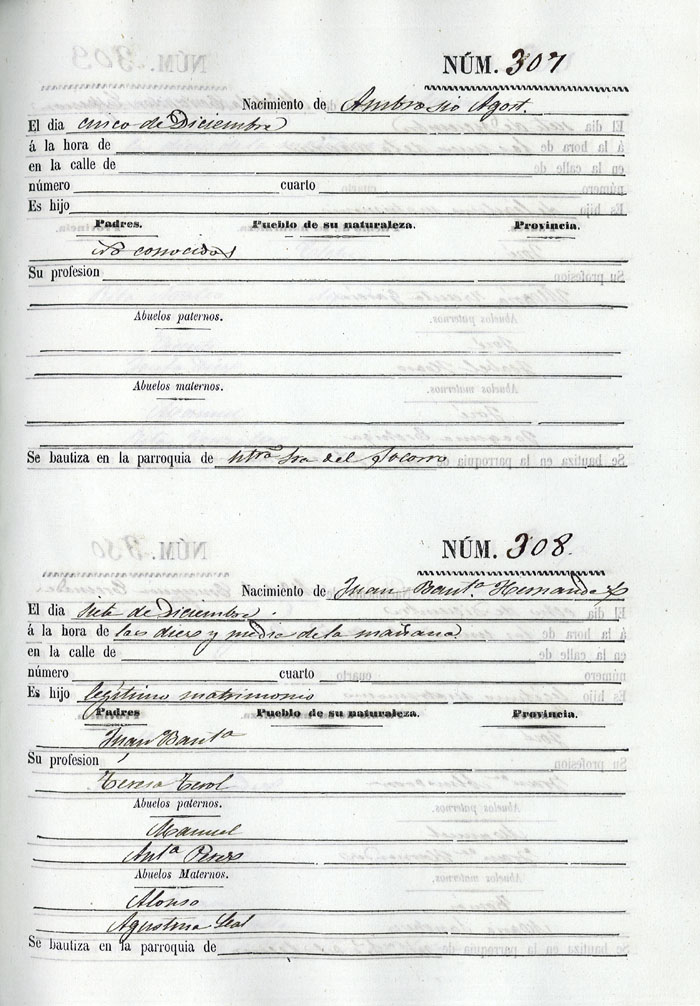 NÚM. 307
Nacimiento de Ambrosio Agost.
El dia cinco de Diciembre
á la hora de
en la calle de
número cuarto
Es hijo
Padres. Pueblo de su naturaleza. Provincia.
No conocidos
Su profesion
Abuelos paternos.
Abuelos maternos.
Se bautiza en la parroquia de Ntra Sra del Socorro
NÚM. 308.
Nacimiento de Juan Bauta Hernandez
El dia siete de Diciembre.
á la hora de las diez y media de la mañana
en la calle de
número cuarto
Es hijo legitimo matrimonio
Padres Pueblo de su naturaleza. Provincia.
Juan Bauta
Su profesion
Teresa Terol
Abuelos paternos.
Manuel
Anta Peres
Abuelos Maternos.
Alonso
Agustina Leal
Se bautiza en la parroquia de